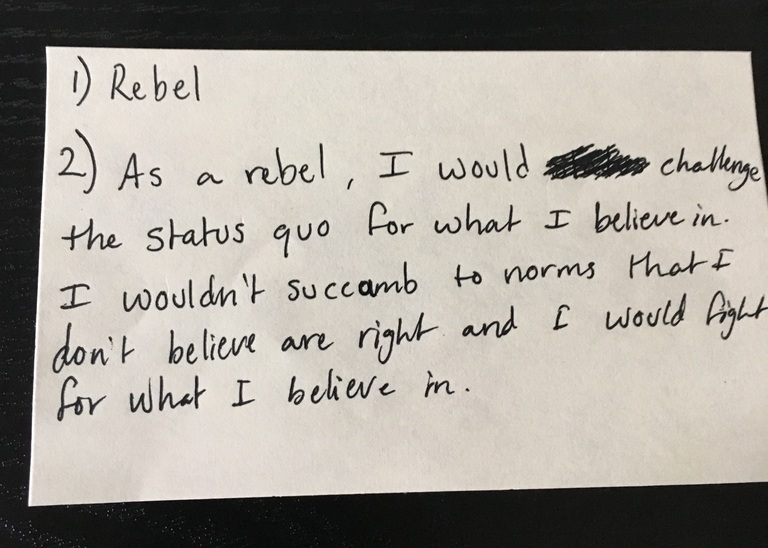 1) Rebel
2) As a rebel, I would challenge
the status quo for what I believe in.
I wouldn't succamb to norms that I
don't believe are right and I would fight
for what I believe in.